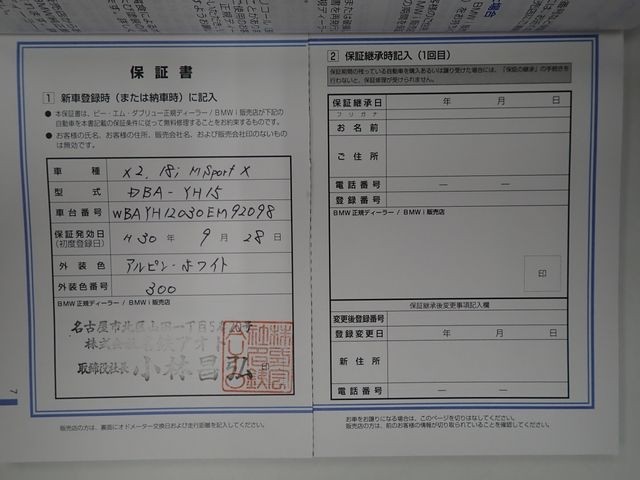 保証書
1 新車登録時（または納車時）に記入
● 本保証書は、ビー・エム・ダブリュー正規ディーラー / BMW i 販売店が下記の
自動車を本書記載の保証条件に従って無料修理することをお約束するものです。
● お客様の氏名、お客様の住所、販売会社名、および販売会社印のないもの
は無効です。
車種 X2. 18i MSport X
型式 DBA-YH15
車台番号 WBAYH12030EM92098
保証発効日
(初度登録日) H30年 9月 28日
外装色 アルピン・ホワイト
外装色番号 300
BMW正規ディーラー / BMW i 販売店
名古屋市北区山田一丁目
株式会社
取締役社長 小林昌弘 印
販売店の方は、裏面にオドメーター交換日および走行距離を記入してください。
7
2 保証継承時記入（1回目）
保証期間の残っている自動車を購入あるいは譲り受けた場合には、「保証の継承」の手続きを
行わないと、保証修理が受けられません。
保証継承日 年 月 日
フリガナ
お名前
ご住所
電話番号 ー ー
登録番号
BMW正規ディーラー / BMW i 販売店
印
保証継承後変更事項記入欄
変更後登録番号
登録変更日 年 月 日
新住所
電話番号 ー ー
お車をお譲りになる場合は、このページを切りはなしてください。
販売店の方は、前のお客様の情報が切り取られていることを確認してください。